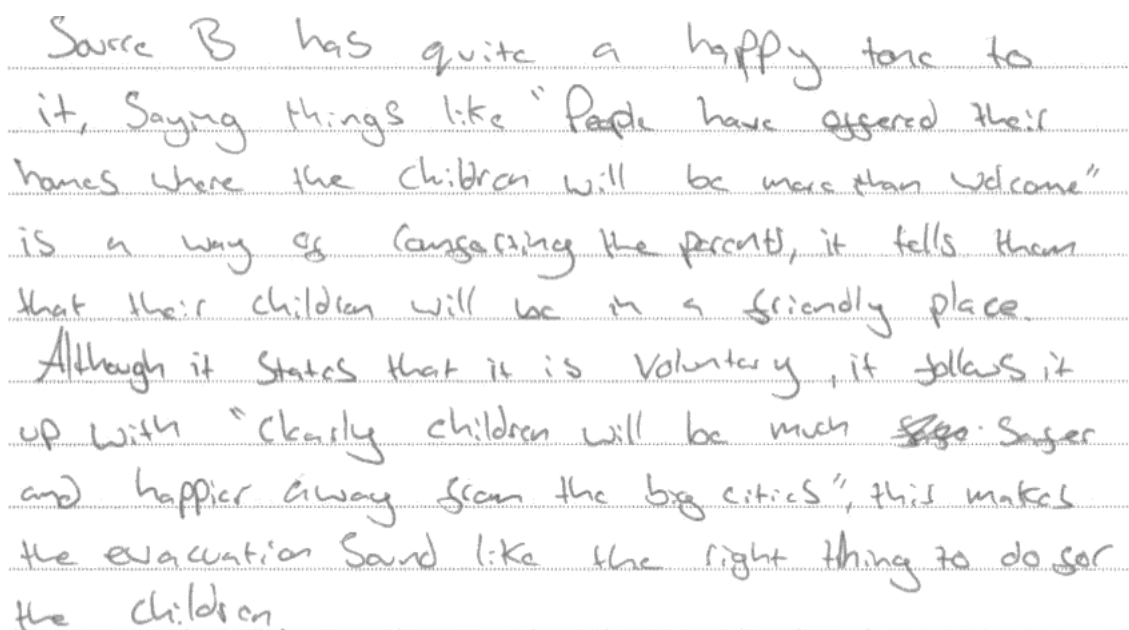 Source B has quite a happy tone to
it, Saying things like "People have offered their
homes where the children will be more than welcome"
is a way of comforting the parents, it tells them
that their children will be in a friendly place.
Although it States that it is Voluntary, it follows it
up with "Clearly children will be much safer
and happier away from the big cities", this makes
the evacuation Sound like the right thing to do for
the children